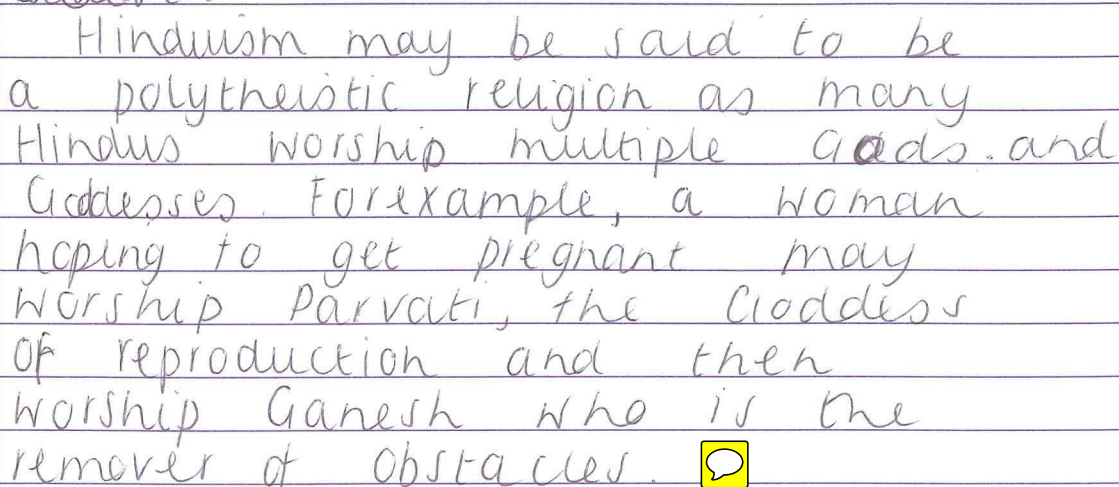 Hinduism may be said to be
a polytheistic religion as many
Hindus worship multiple Gods. and
Goddesses. Forexample, a woman
hoping to get pregnant may
worship Parvati, the Goddess
of reproduction and then
worship Ganesh who is the
remover of obstacles.